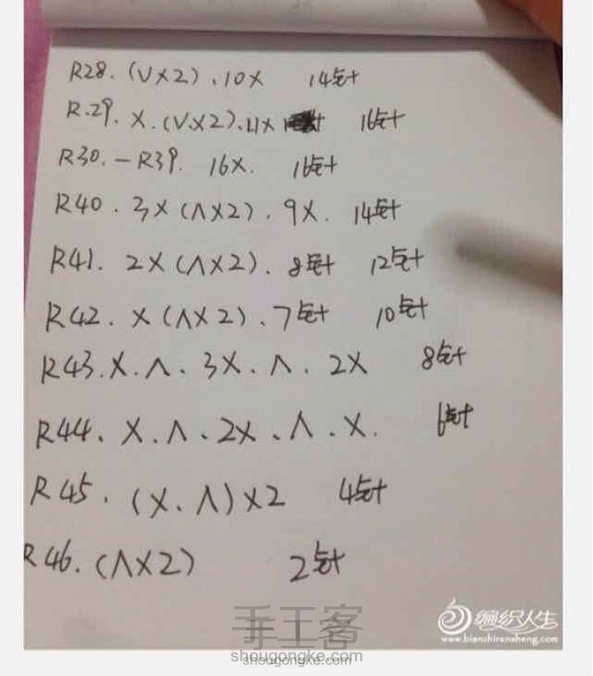 R28. (V×2). 10X 14针
R.29. X. (V×2). 11X 16针
R30. — R39. 16X. 16针
R40. 3X (Λ×2). 9X. 14针
R41. 2X (Λ×2). 8针 12针
R42. X (Λ×2). 7针 10针
R43. X. Λ. 3X. Λ. 2X 8针
R44. X. Λ. 2X. Λ. X. 6针
R45. (X. Λ)×2 4针
R46. (Λ×2) 2针
手工客
shougongke.com
shougongke.com
编织人生
www.bianzhirensheng.com